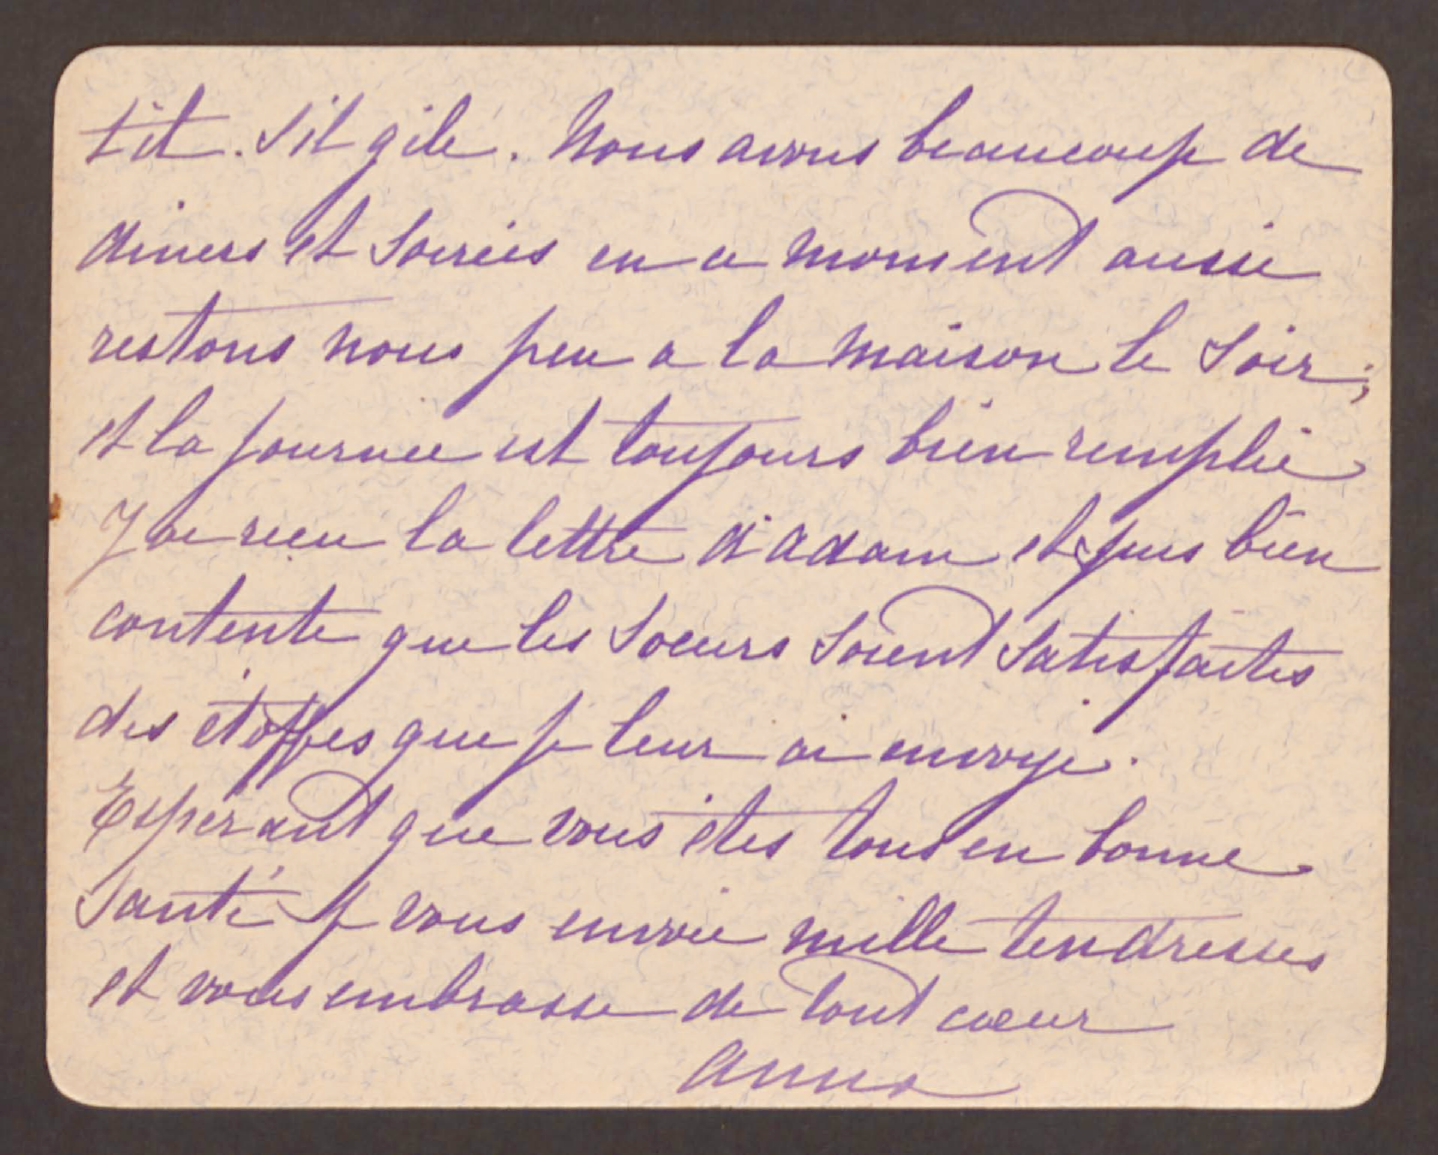 tit. S'il gèle. Nous avons beaucoup de
diners et Soirées en ce moment aussi
restons nous peu a la maison le Soir;
et la journée est toujours bien remplie
J'ai reçu la lettre d'adam et suis bien
contente que les Soeurs Soient Satisfaites
des étoffes que je leur ai envoyé.
Espérant que vous êtes tous en bonne
Santé je vous envoie mille tendresses
et vous embrasse de tout coeur
anna